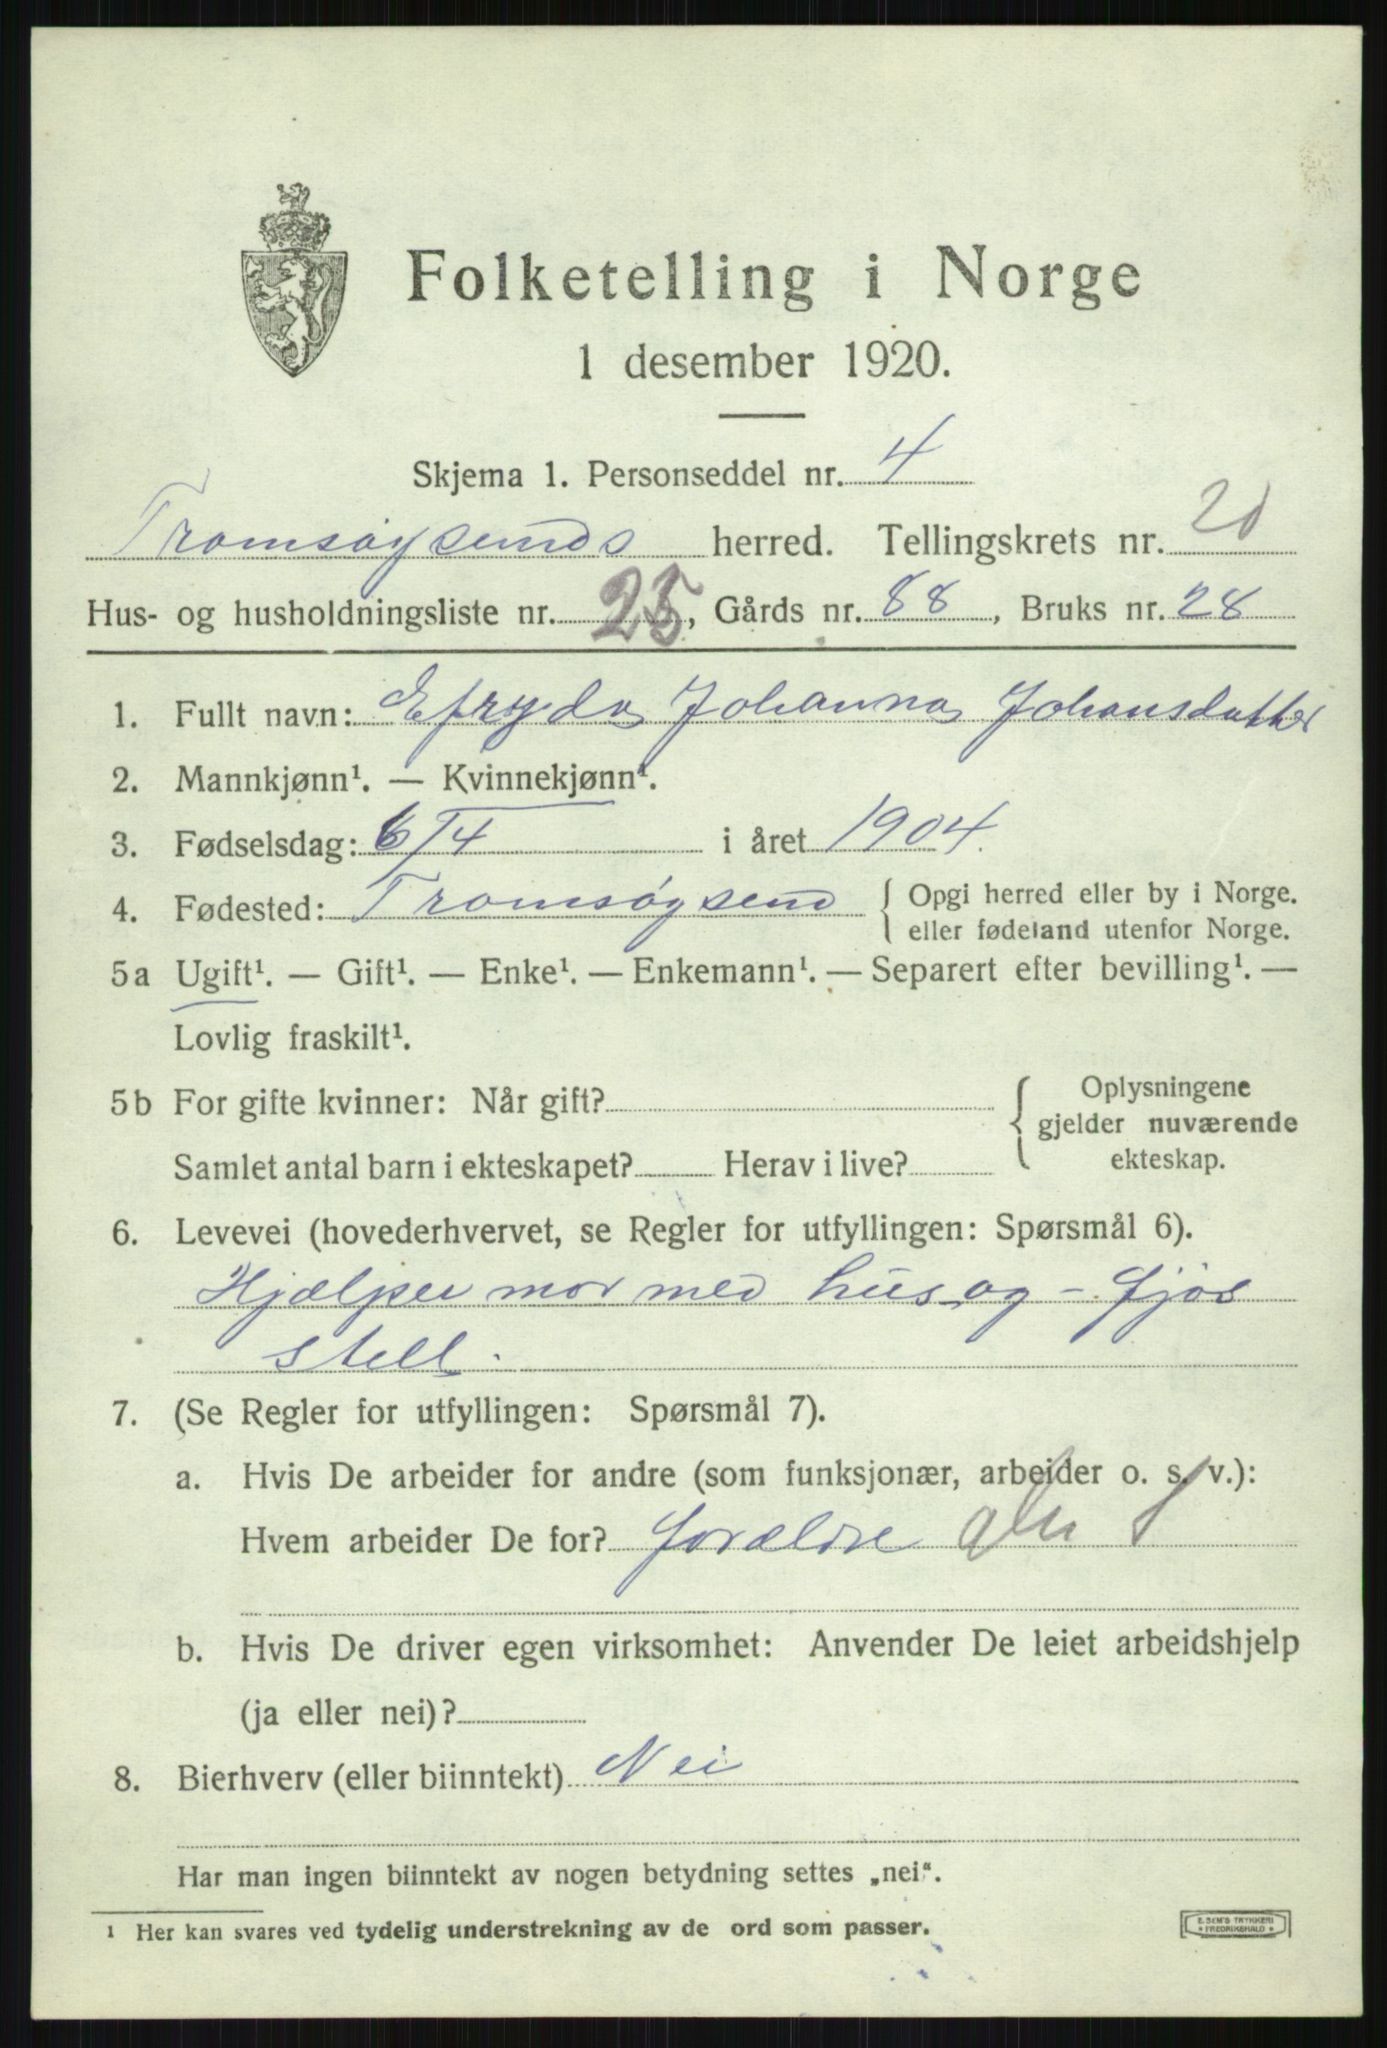 Folketelling i Norge
1 desember 1920.
Skjema 1. Personseddel nr. 4
Tromsøysunds herred. Tellingskrets nr. 20
Hus- og husholdningsliste nr. 25, Gårds nr. 88, Bruks nr. 28
1. Fullt navn: Efryda Johanna Johansdatter
2. Mannkjønn¹. — Kvinnekjønn¹.
3. Fødselsdag: 6/4 i året 1904.
4. Fødested: Tromsøysund { Opgi herred eller by i Norge.
eller fødeland utenfor Norge.
5a Ugift¹. — Gift¹. — Enke¹. — Enkemann¹. — Separert efter bevilling¹. —
Lovlig fraskilt¹.
5b For gifte kvinner: Når gift? { Oplysningene
gjelder nuværende
Samlet antal barn i ekteskapet? Herav i live? ekteskap.
6. Levevei (hovederhvervet, se Regler for utfyllingen: Spørsmål 6).
Hjælper mor med hus og - fjøs
stell.
7. (Se Regler for utfyllingen: Spørsmål 7).
a. Hvis De arbeider for andre (som funksjonær, arbeider o. s. v.):
Hvem arbeider De for? forældre
b. Hvis De driver egen virksomhet: Anvender De leiet arbeidshjelp
(ja eller nei)?
8. Bierhverv (eller biinntekt) Nei
Har man ingen biinntekt av nogen betydning settes „nei“.
1 Her kan svares ved tydelig understrekning av de ord som passer.
E. SEM'S TRYKKERI
* FREDRIKSHALD *